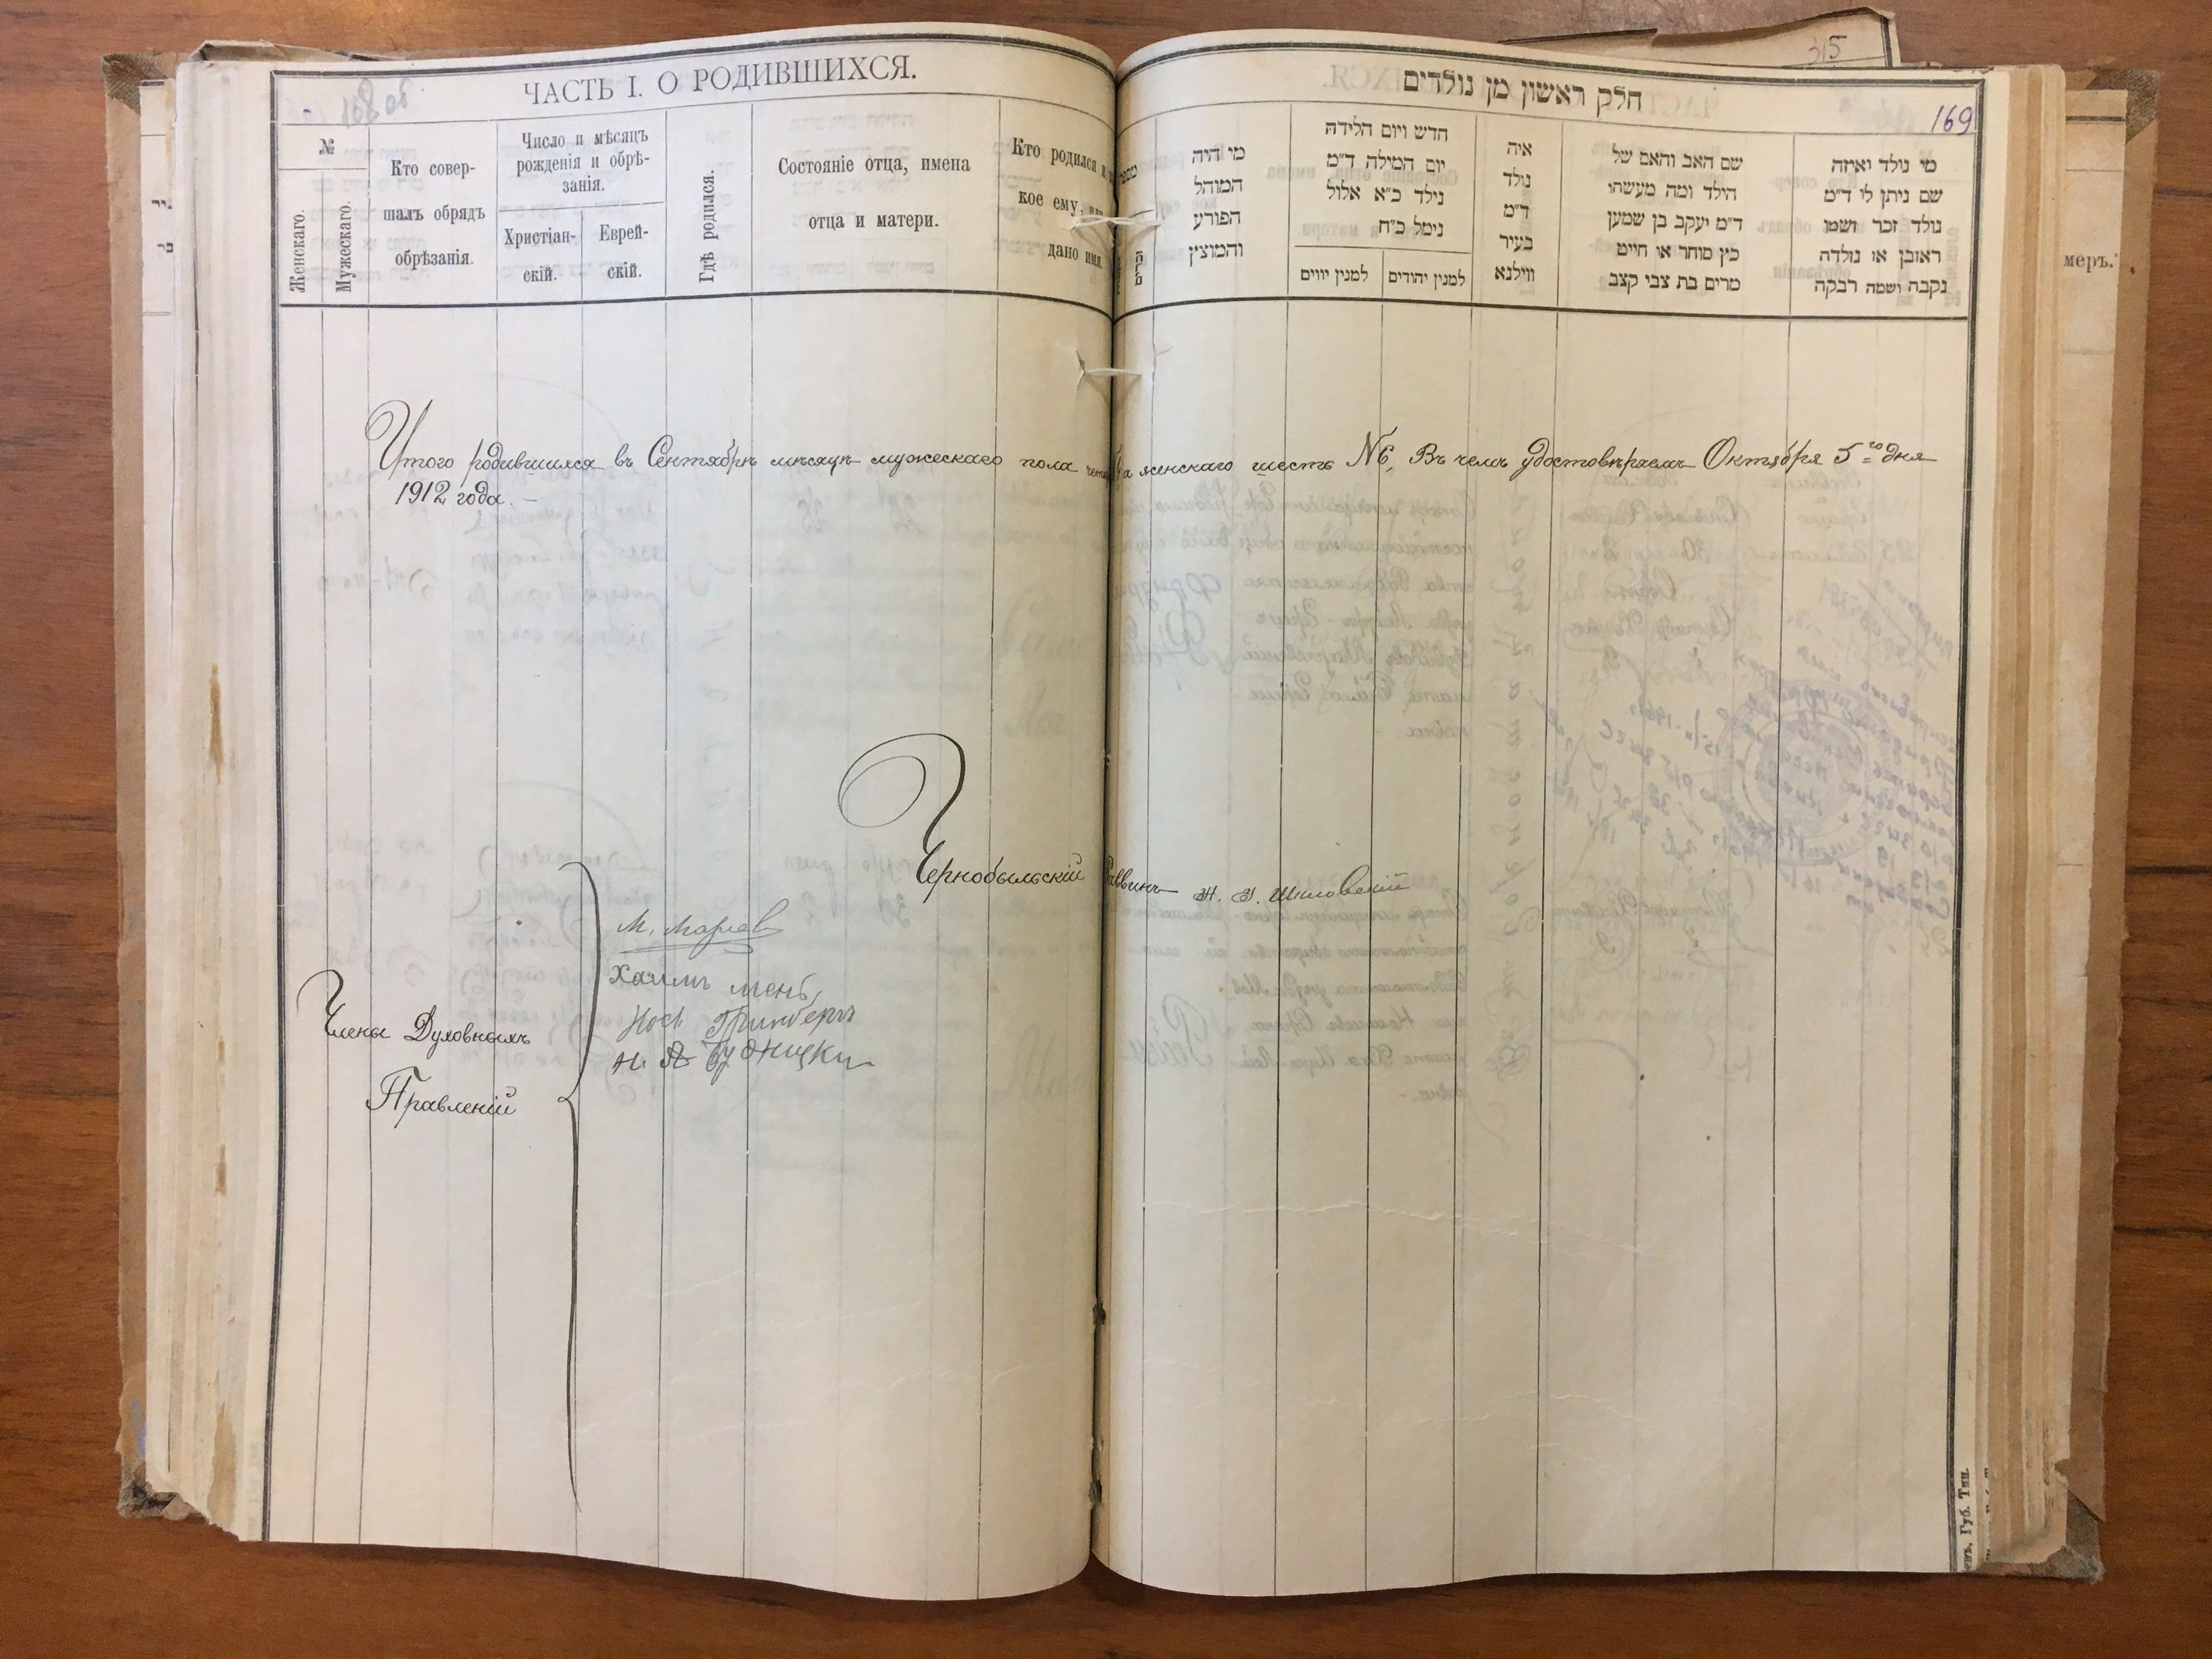 ЧАСТЬ I. О РОДИВШИХСЯ.
№
Женскаго.
Мужескаго.
Кто совер-
шалъ обрядъ
обрѣзанія.
Число и мѣсяцъ
рожденія и обрѣ-
занія.
Христіан-
скій.
Еврей-
скій.
Гдѣ родился.
Состояніе отца, имена
отца и матери.
Кто родился и
кое ему,
дано имя.
315
חלק ראשון מן נולדים
169
מי היה
המוהל
הפורע
והמוצץ
חדש ויום הלידה
יום המילה ד"מ
נילד כ"א אלול
נימל כ"ח
למנין יווים
למנין יהודים
איה
נולד
ד"מ
בעיר
ווילנא
שם האב והאם של
הילד ומה מעשהו
ד"מ יעקב בן שמען
כץ סוחר או חייט
מרים בת צבי קצב
מי נולד ואיזה
שם ניתן לו ד"מ
נולד זכר ושמו
ראובן או נולדה
נקבה ושמה רבקה
меръ.
Итого родившихся въ Сентябрѣ мѣсяцѣ мужескаго пола женскаго шесть №6, Въ чемъ удостовѣряемъ Октября 5го дня
1912 года.
Чернобыльскій Раввинъ Шкловскій
Члены Духовныхъ
Правленій
М.
Хаимъ мень
Іось Гринберъ
Будницки
Губ. Тип.